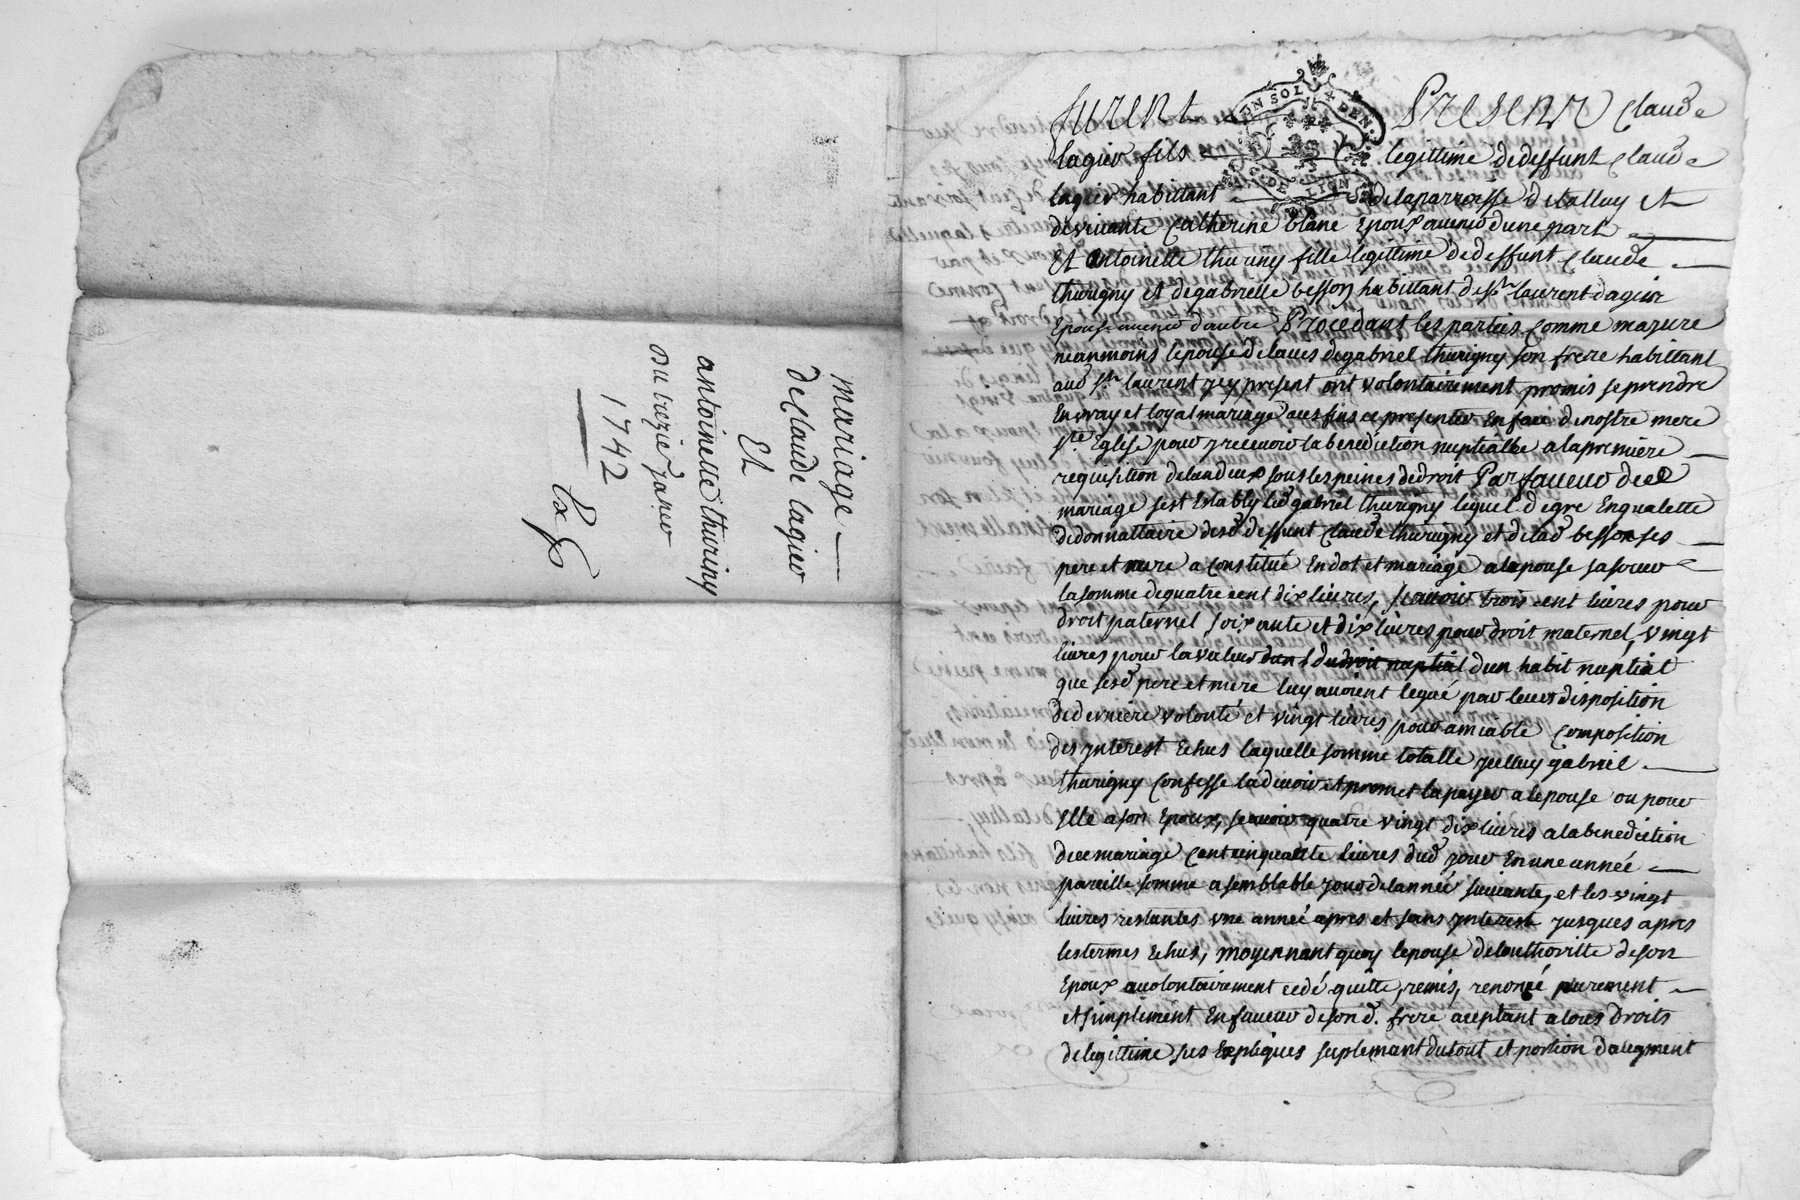 mariage
de Claude lagier
Et
antoinette thuriny
Du treziè janier
1742
Ex
furent Present Claude
UN SOL 4 DEN.
G. DE LION
lagier fils legittime de deffunt Claude
lagier habittant de la parroisse de talluy et
de vivante Catherine blanc Epoux avenir dune part
Et Antoinette thuriny fille legittime de deffunt Claude
thurigny et de gabrielle besson habittant de St laurent dagnir
Epouse avenir dautre Procedant les parties Comme majure
neanmoins lepouse de lavis de gabriel thurigny son frere habittant
aud St laurent jcy present ont volontairement promis se prendre
En vray et loyal mariage aces fins ce presenter En face de nostre mere
Ste Eglise pour y recevoir la benediction nuptialle a la premiere
requisition de lun deux sous les peines de droit Par faveur de ce
mariage sest Estably led gabriel thurigny lequel de gre En qualitte
de donnattaire desd deffunt Claude thurigny et de lad besson ses
pere et mere a Constitué En dot et mariage a lepouse sa soeur
la somme de quatre cent dix livres, scavoir trois cent livres pour
droit paternel soixante et dix livres pour droit maternel, vingt
livres pour la valeur du droit nuptial dun habit nuptial
que sesd pere et mere luy avoient legué par leurs disposition
de derniere volonté et vingt livres pour amiable Composition
des jnterest Echus laquelle somme totalle jcelluy gabriel
thurigny Confesse la devoir et promet la payer a lepouse ou pour
Elle a son Epoux, scavoir quatre vingt dix livres a la benediction
de ce mariage Cent cinquante livres dud jour En une année
pareille somme a semblable jour de lannée suivante, et les vingt
livres restantes une année apres et sans jnterest jusques apres
les termes Echus, moyennant quoy lepouse de lauthoritte de son
Epoux a volontairement cedé quitte, remis, renoncé purement
et simplement En faveur de son d. frere aceptant a tous Droits
de legittime ses Expliques suplemant du tout et portion daugment